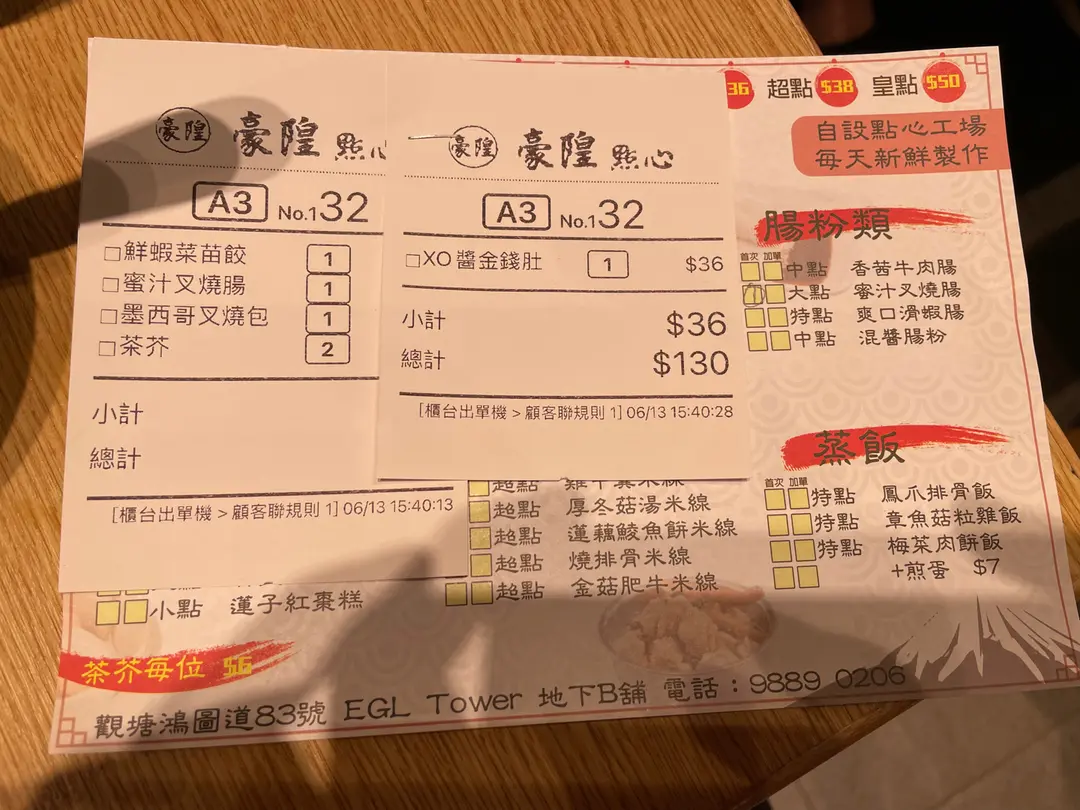 豪隍
豪隍 點心
A3 No.132
□鮮蝦菜苗餃 1
□蜜汁叉燒腸 1
□墨西哥叉燒包 1
□茶芥 2
小計
總計
[櫃台出單機 > 顧客聯規則 1] 06/13 15:40:13
豪隍
豪隍 點心
A3 No.132
□XO醬金錢肚 1 $36
小計 $36
總計 $130
[櫃台出單機 > 顧客聯規則 1] 06/13 15:40:28
36 超點 $38 皇點 $50
自設點心工場
每天新鮮製作
腸粉類
首次 加單
中點 香茜牛肉腸
大點 蜜汁叉燒腸
特點 爽口滑蝦腸
中點 混醬腸粉
蒸飯
首次 加單
特點 鳳爪排骨飯
特點 章魚菇粒雞飯
特點 梅菜肉餅飯
+煎蛋 $7
超點
超點 厚冬菇湯米線
超點 蓮藕鯪魚餅米線
超點 燒排骨米線
超點 金菇肥牛米線
小點 蓮子紅棗糕
茶芥每位 $6
觀塘鴻圖道83號 EGL Tower 地下B舖 電話：9889 0206